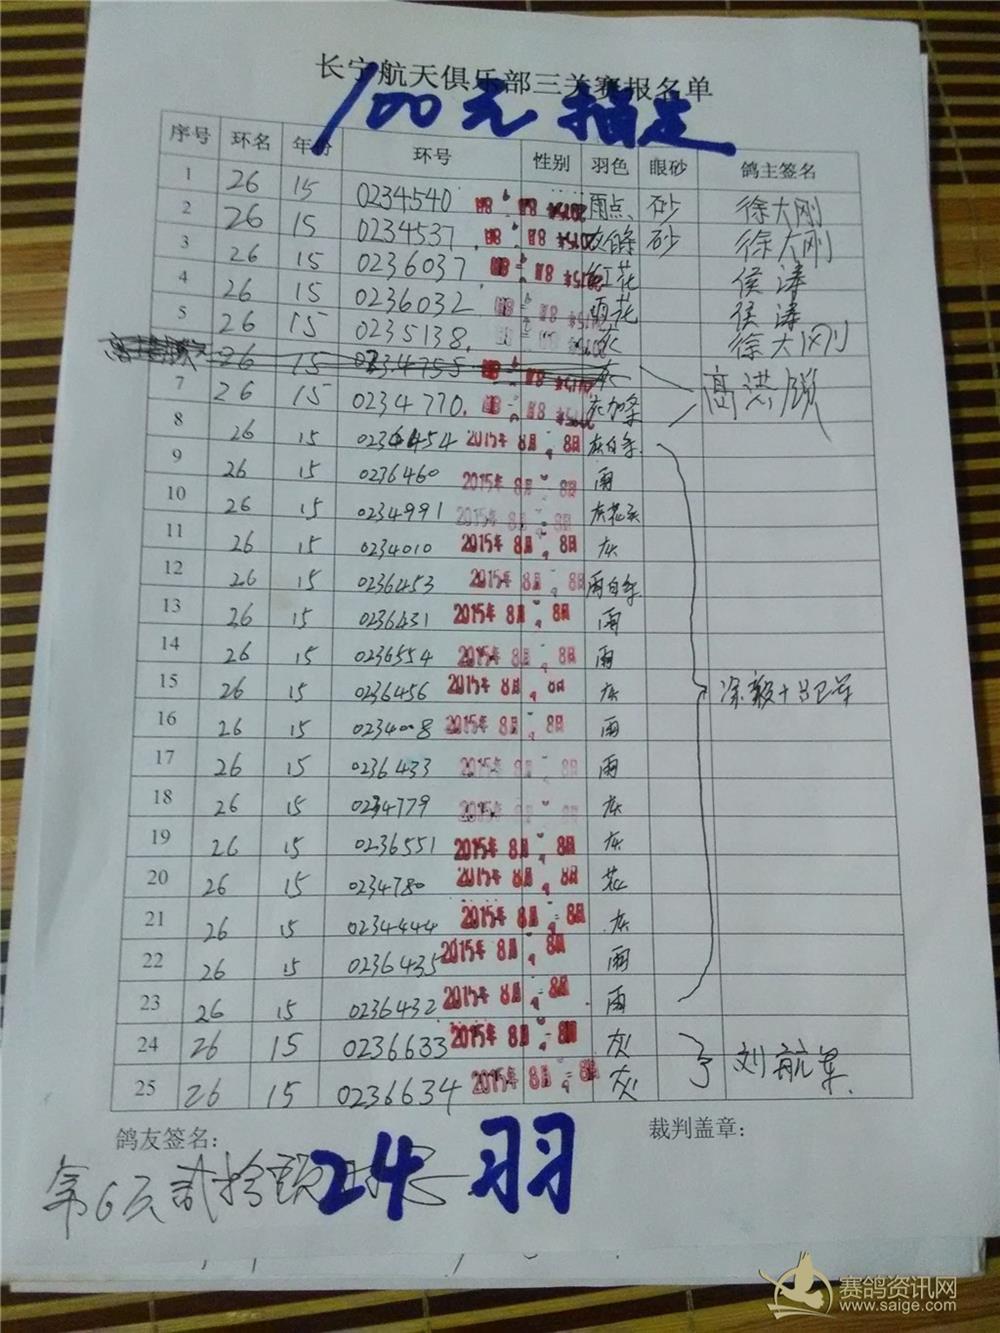 长宁航天俱乐部三关赛报名单
100元指定
序号 环名 年份 环号 性别 羽色 眼砂 鸽主签名
1 26 15 0234540 雨点 砂 徐大刚
2 26 15 0234537 灰白条 砂 徐大刚
3 26 15 0236037 红花 侯涛
4 26 15 0236032 雨花 侯涛
5 26 15 0235138 灰 徐大刚
26 15 0234755
7 26 15 0234770 高洪
8 26 15 0236454 2015年8月 8日 灰白条
9 26 15 0236460 2015年8月 8日 雨
10 26 15 0234991 2015年8月 8日 灰花头
11 26 15 0234010 2015年8月 8日 灰
12 26 15 0236453 2015年8月 8日 雨白条
13 26 15 0236431 2015年8月 8日 雨
14 26 15 0236554 2015年8月 8日 雨
15 26 15 0236456 2015年8月 8日 灰
16 26 15 0234008 2015年8月 8日 雨
17 26 15 0236433 2015年8月 8日 雨
18 26 15 0234779 2015年8月 8日 灰
19 26 15 0236551 2015年8月 8日 灰
20 26 15 0234780 2015年8月 8日 花
21 26 15 0234444 2015年8月 8日 灰
22 26 15 0236435 2015年8月 8日 雨
23 26 15 0236432 2015年8月 8日 雨
24 26 15 0236633 2015年8月 8日 灰 刘航
25 26 15 0236634 2015年8月 8日 灰
鸽友签名： 裁判盖章：
第6页贰拾
24羽
赛鸽资讯网
www.saige.com